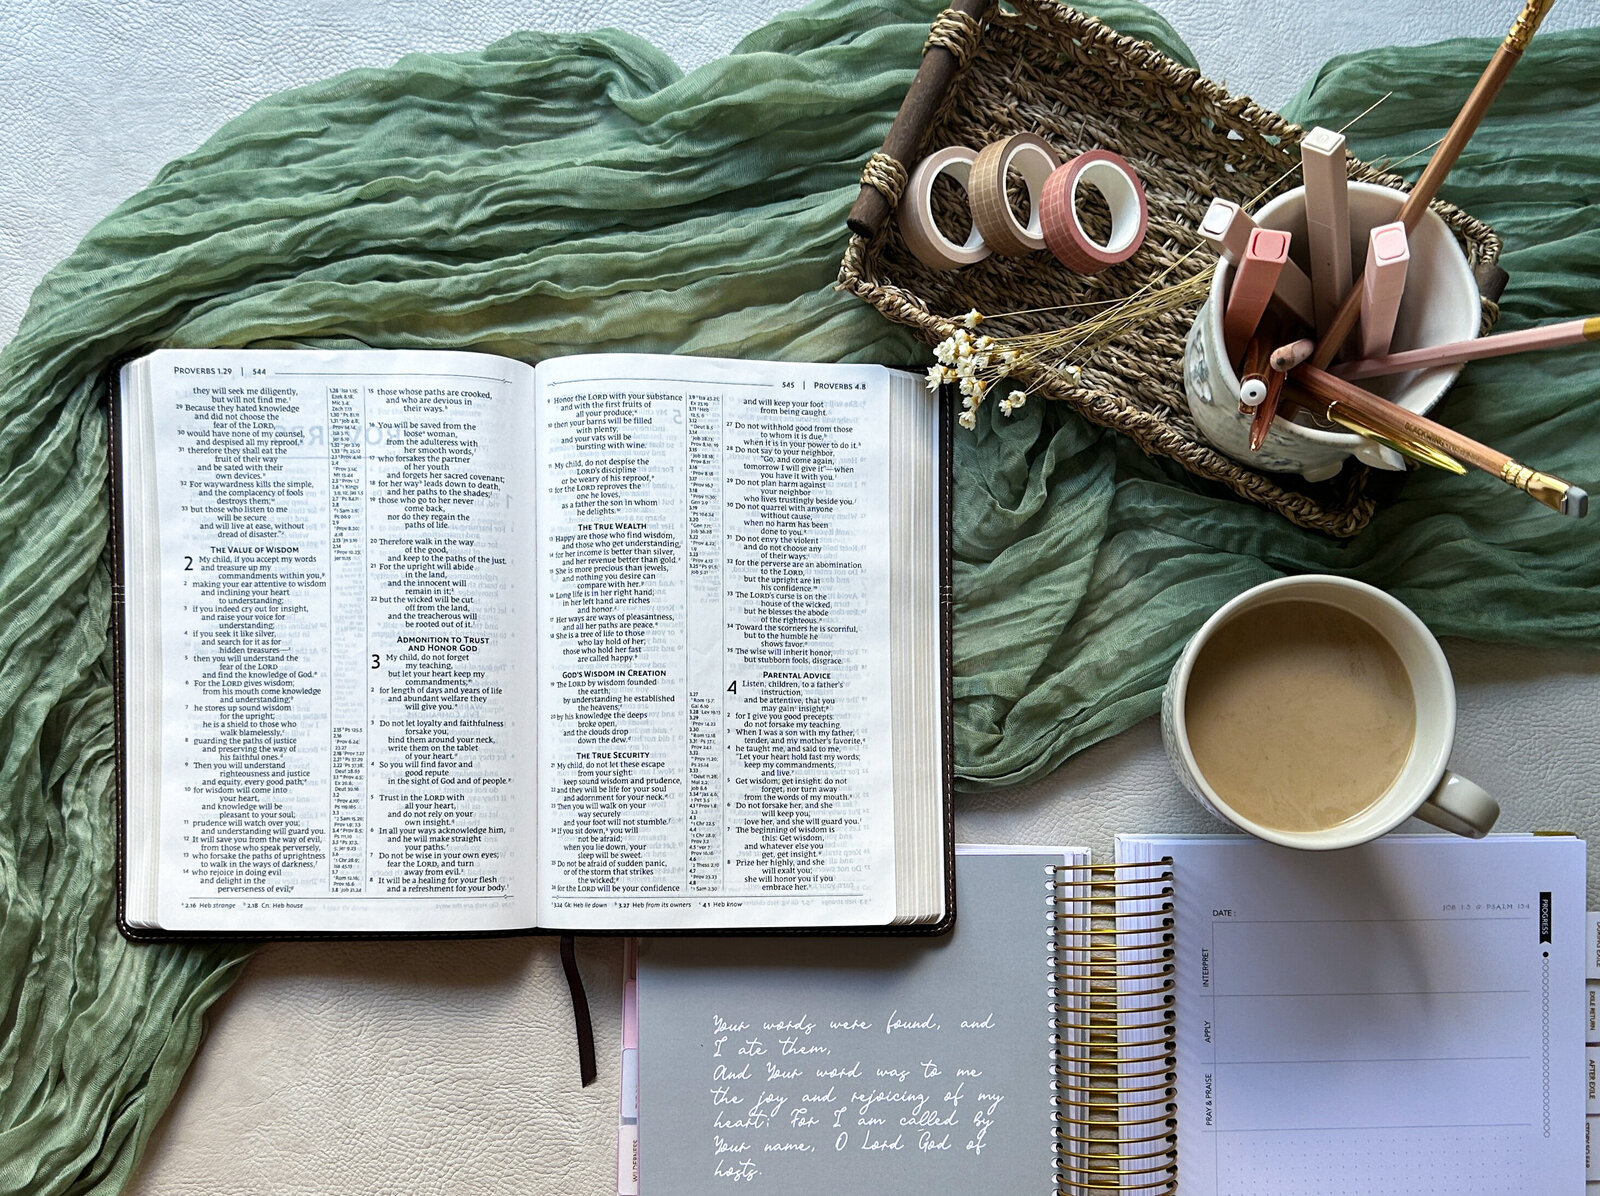 PROVERBS 1.29 | 544
they will seek me diligently,
but will not find me.
29 Because they hated knowledge
and did not choose the
fear of the LORD,
30 would have none of my counsel,
and despised all my reproof,
31 therefore they shall eat the
fruit of their way
and be sated with their
own devices.
32 For waywardness kills the simple,
and the complacency of fools
destroys them;
33 but those who listen to me
will be secure
and will live at ease, without
dread of disaster."
THE VALUE OF WISDOM
2 My child, if you accept my words
and treasure up my
commandments within you,
2 making your ear attentive to wisdom
and inclining your heart
to understanding;
3 if you indeed cry out for insight,
and raise your voice for
understanding;
4 if you seek it like silver,
and search for it as for
hidden treasures—
5 then you will understand the
fear of the LORD
and find the knowledge of God.
6 For the LORD gives wisdom;
from his mouth come knowledge
and understanding;
7 he stores up sound wisdom
for the upright;
he is a shield to those who
walk blamelessly,
8 guarding the paths of justice
and preserving the way of
his faithful ones.
9 Then you will understand
righteousness and justice
and equity, every good path;
10 for wisdom will come into
your heart,
and knowledge will be
pleasant to your soul;
11 prudence will watch over you;
and understanding will guard you.
12 It will save you from the way of evil,
from those who speak perversely,
13 who forsake the paths of uprightness
to walk in the ways of darkness,
14 who rejoice in doing evil
and delight in the
perverseness of evil;
15 those whose paths are crooked,
and who are devious in
their ways.
16 You will be saved from the
loose woman,
from the adulteress with
her smooth words,
17 who forsakes the partner
of her youth
and forgets her sacred covenant;
18 for her way leads down to death,
and her paths to the shades;
19 those who go to her never
come back,
nor do they regain the
paths of life.
20 Therefore walk in the way
of the good,
and keep to the paths of the just.
21 For the upright will abide
in the land,
and the innocent will
remain in it;
22 but the wicked will be cut
off from the land,
and the treacherous will
be rooted out of it.
ADMONITION TO TRUST
AND HONOR GOD
3 My child, do not forget
my teaching,
but let your heart keep my
commandments;
2 for length of days and years of life
and abundant welfare they
will give you.
3 Do not let loyalty and faithfulness
forsake you;
bind them around your neck,
write them on the tablet
of your heart.
4 So you will find favor and
good repute
in the sight of God and of people.
5 Trust in the LORD with
all your heart,
and do not rely on your
own insight.
6 In all your ways acknowledge him,
and he will make straight
your paths.
7 Do not be wise in your own eyes;
fear the LORD, and turn
away from evil.
8 It will be a healing for your flesh
and a refreshment for your body.
2.16 Heb strange 2.18 Cn: Heb house
545 | PROVERBS 4.8
9 Honor the LORD with your substance
and with the first fruits of
all your produce;
10 then your barns will be filled
with plenty,
and your vats will be
bursting with wine.
11 My child, do not despise the
LORD's discipline
or be weary of his reproof,
12 for the LORD reproves the
one he loves,
as a father the son in whom
he delights.
THE TRUE WEALTH
13 Happy are those who find wisdom,
and those who get understanding,
14 for her income is better than silver,
and her revenue better than gold.
15 She is more precious than jewels,
and nothing you desire can
compare with her.
16 Long life is in her right hand;
in her left hand are riches
and honor.
17 Her ways are ways of pleasantness,
and all her paths are peace.
18 She is a tree of life to those
who lay hold of her;
those who hold her fast
are called happy.
GOD'S WISDOM IN CREATION
19 The LORD by wisdom founded
the earth;
by understanding he established
the heavens;
20 by his knowledge the deeps
broke open,
and the clouds drop
down the dew.
THE TRUE SECURITY
21 My child, do not let these escape
from your sight:
keep sound wisdom and prudence,
22 and they will be life for your soul
and adornment for your neck.
23 Then you will walk on your
way securely
and your foot will not stumble.
24 If you sit down, you will
not be afraid;
when you lie down, your
sleep will be sweet.
25 Do not be afraid of sudden panic,
or of the storm that strikes
the wicked;
26 for the LORD will be your confidence
and will keep your foot
from being caught.
27 Do not withhold good from those
to whom it is due,
when it is in your power to do it.
28 Do not say to your neighbor,
"Go, and come again,
tomorrow I will give it"—when
you have it with you.
29 Do not plan harm against
your neighbor
who lives trustingly beside you.
30 Do not quarrel with anyone
without cause,
when no harm has been
done to you.
31 Do not envy the violent
and do not choose any
of their ways;
32 for the perverse are an abomination
to the LORD,
but the upright are in
his confidence.
33 The LORD's curse is on the
house of the wicked,
but he blesses the abode
of the righteous.
34 Toward the scorners he is scornful,
but to the humble he
shows favor.
35 The wise will inherit honor,
but stubborn fools, disgrace.
PARENTAL ADVICE
4 Listen, children, to a father's
instruction,
and be attentive, that you
may gain insight;
2 for I give you good precepts:
do not forsake my teaching.
3 When I was a son with my father,
tender, and my mother's favorite,
4 he taught me, and said to me,
"Let your heart hold fast my words;
keep my commandments,
and live.
5 Get wisdom; get insight: do not
forget, nor turn away
from the words of my mouth.
6 Do not forsake her, and she
will keep you;
love her, and she will guard you.
7 The beginning of wisdom is
this: Get wisdom,
and whatever else you
get, get insight.
8 Prize her highly, and she
will exalt you;
she will honor you if you
embrace her.
3.24 Gk: Heb lie down 3.27 Heb from its owners 4.1 Heb know
BLACKWING
Your words were found, and
I ate them,
And Your word was to me
the joy and rejoicing of my
heart; For I am called by
Your name, O Lord God of
hosts.
WILDERNESS
DATE :
JOB 1-3 & PSALM 104
PROGRESS
INTERPRET
APPLY
PRAY & PRAISE
EXILE RETURN
AFTER EXILE